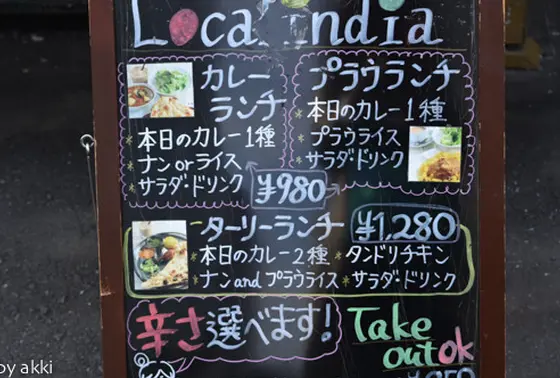 Local india
カレー
ランチ
*本日のカレー1種
*ナンorライス
*サラダ・ドリンク
プラウランチ
*本日のカレー1種
*プラウライス
*サラダ・ドリンク
¥980
ターリーランチ ¥1,280
*本日のカレー2種 *タンドリチキン
*ナンand プラウライス *サラダ・ドリンク
辛さ選べます!
Take
out ok
by akki